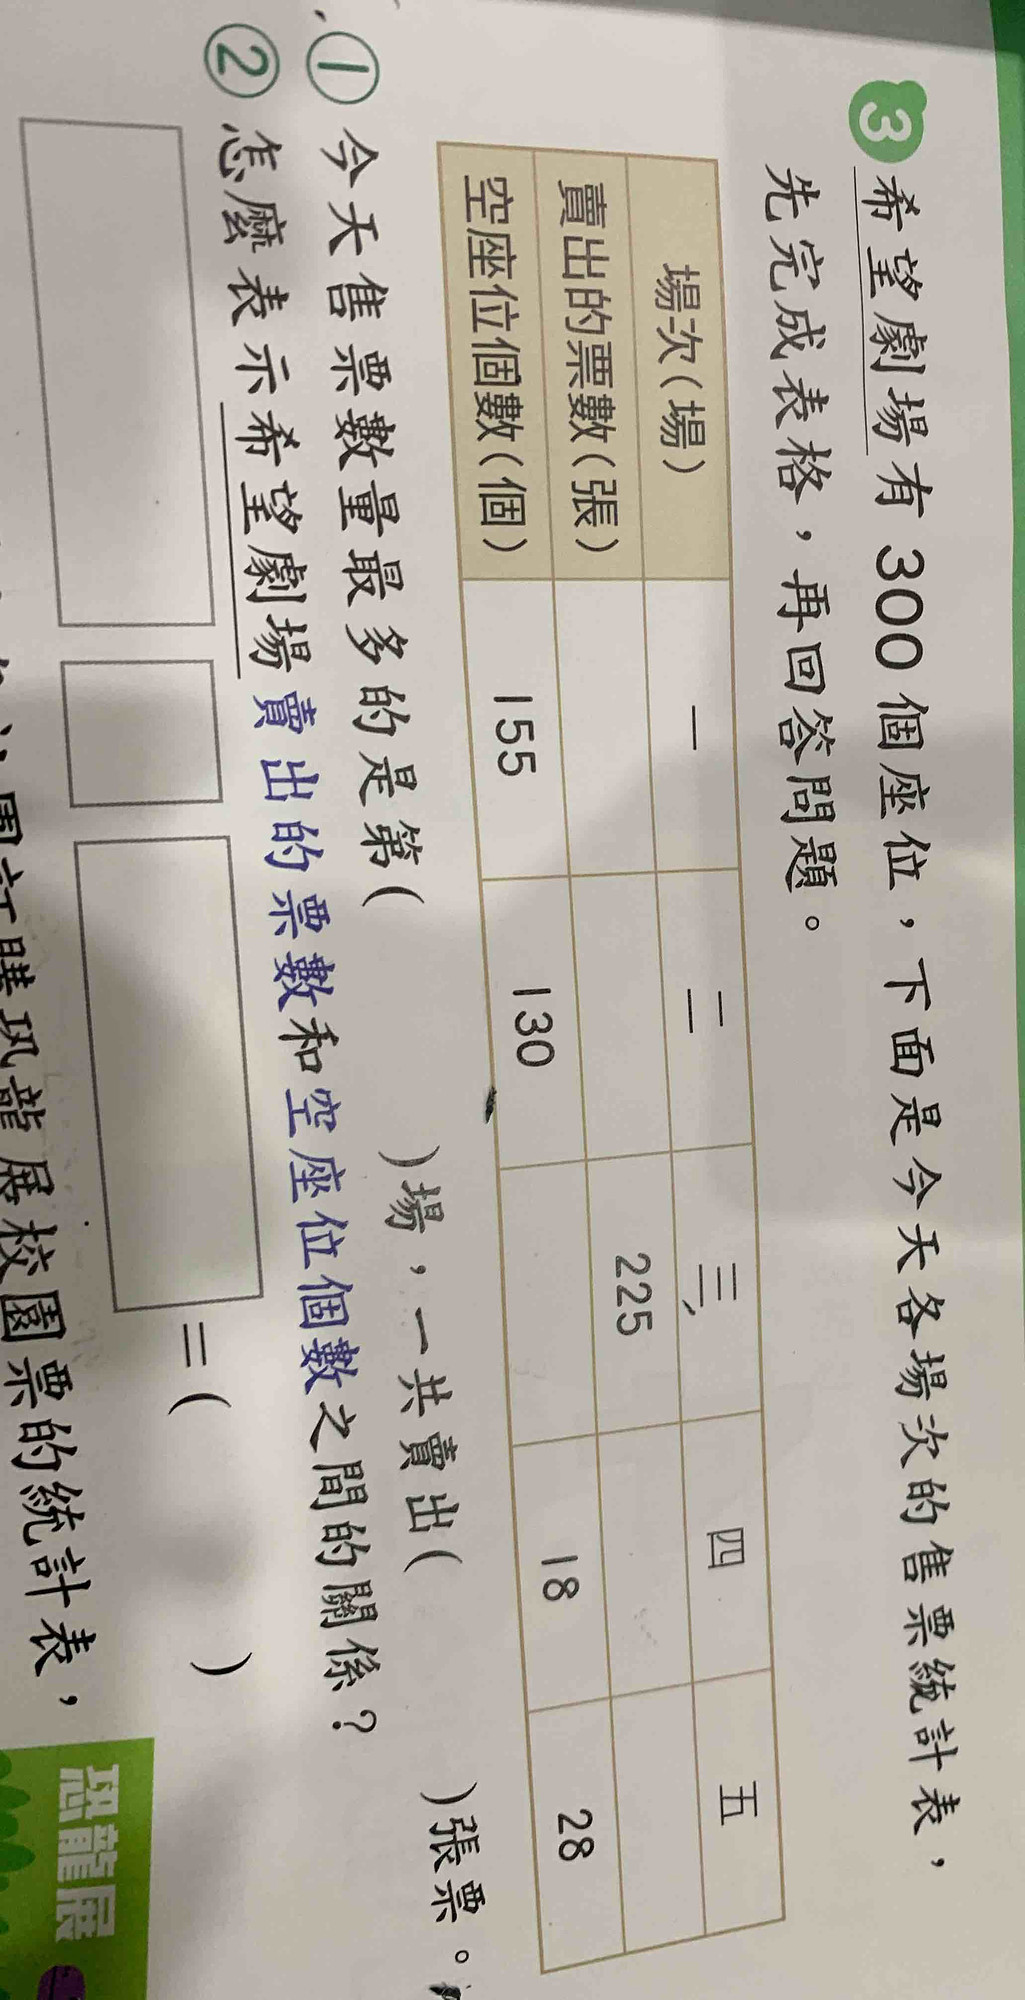 3 希望劇場有 300 個座位，下面是今天各場次的售票統計表，
先完成表格，再回答問題。
場次(場) 一 二 三 四 五
賣出的票數(張) 225
空座位個數(個) 155 130 18 28
① 今天售票數量最多的是第( )場，一共賣出( )張票。
② 怎麼表示希望劇場賣出的票數和空座位個數之間的關係？
=( )
訂購恐龍展校園票的統計表，
恐龍展